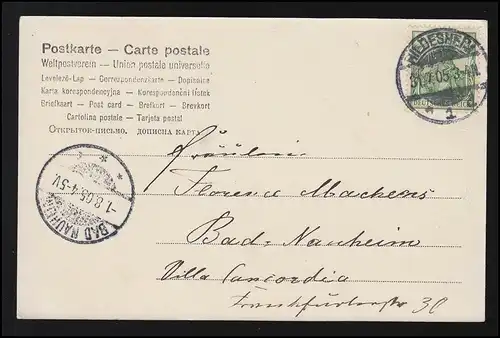 Postkarte — Carte postale
Weltpostverein — Union postale universelle
Levelező-Lap — Correspondenzkarte — Dopisnice
Karta korespondencyjna — Korespondenční lístek
Briefkaart — Post card — Brefkort — Brevkort
Cartolina postale — Tarjeta postal
Открытое-письмо. дописна карта
HILDESHEIM
31.7.05.3-4
1
DEUTSCHES REICH
BAD NAUHEIM
-1.8.05.4-5V.
Fräulein
Florence Machens
Bad-Nauheim
Villa Concordia
Frankfurterstr 30